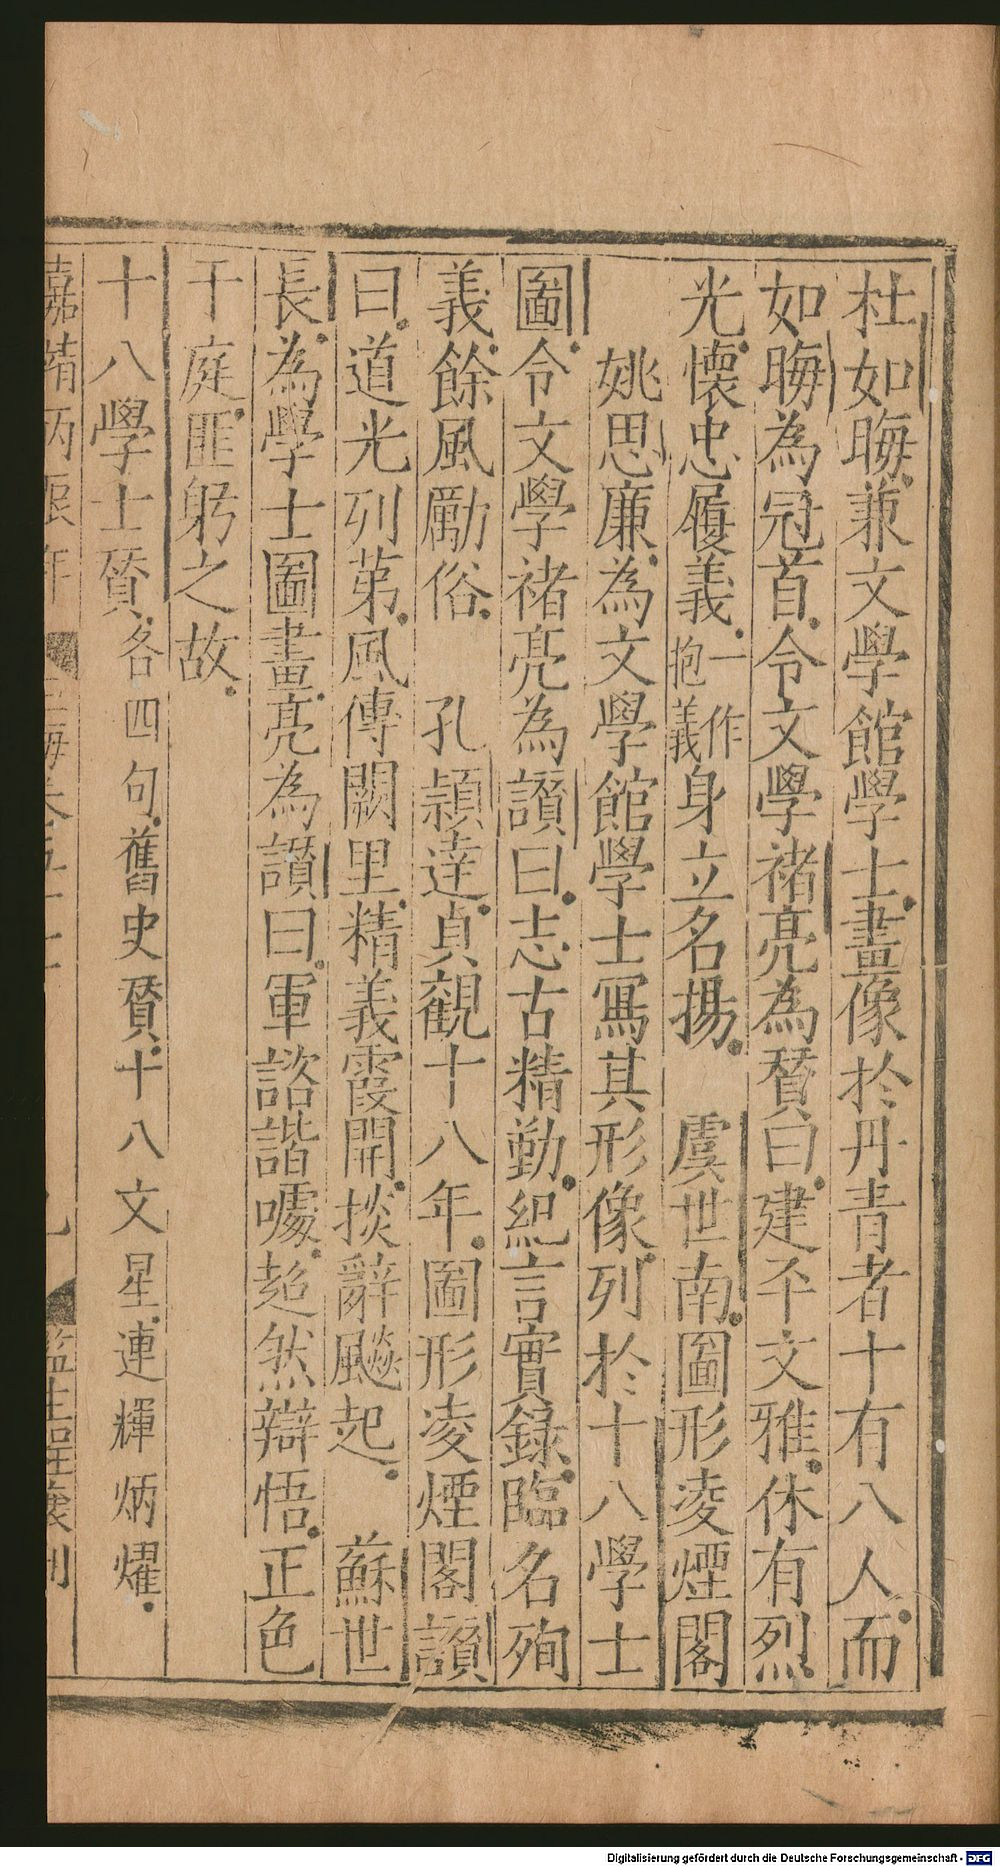 杜如晦兼文學館學士畫像於丹青者十有八人而
如晦為冠首令文學褚亮為賛曰建平文雅休有烈
光懷忠履義一作抱義身立名揚 虞世南圖形凌煙閣
姚思廉為文學館學士寫其形像列於十八學士
圖令文學褚亮為讃曰志古精勤紀言實錄臨名殉
義餘風勵俗 孔頴達貞觀十八年圖形凌煙閣讃
曰道光列第風傳闕里精義霞開掞辭飈起 蘇世
長為學士圖畫亮為讃曰軍諮諧噱超然辯悟正色
于庭匪躬之故
十八學士賛各四句舊史賛十八文星連輝炳燿
嘉靖丙辰年 監生
Digitalisierung gefördert durch die Deutsche Forschungsgemeinschaft - DFG